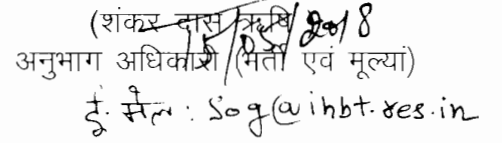 (शंकर दास ऋषि)
15/05/2018
अनुभाग अधिकारी (भर्ती एवं मूल्यां)
ई. मेल : sog@ihbt.res.in